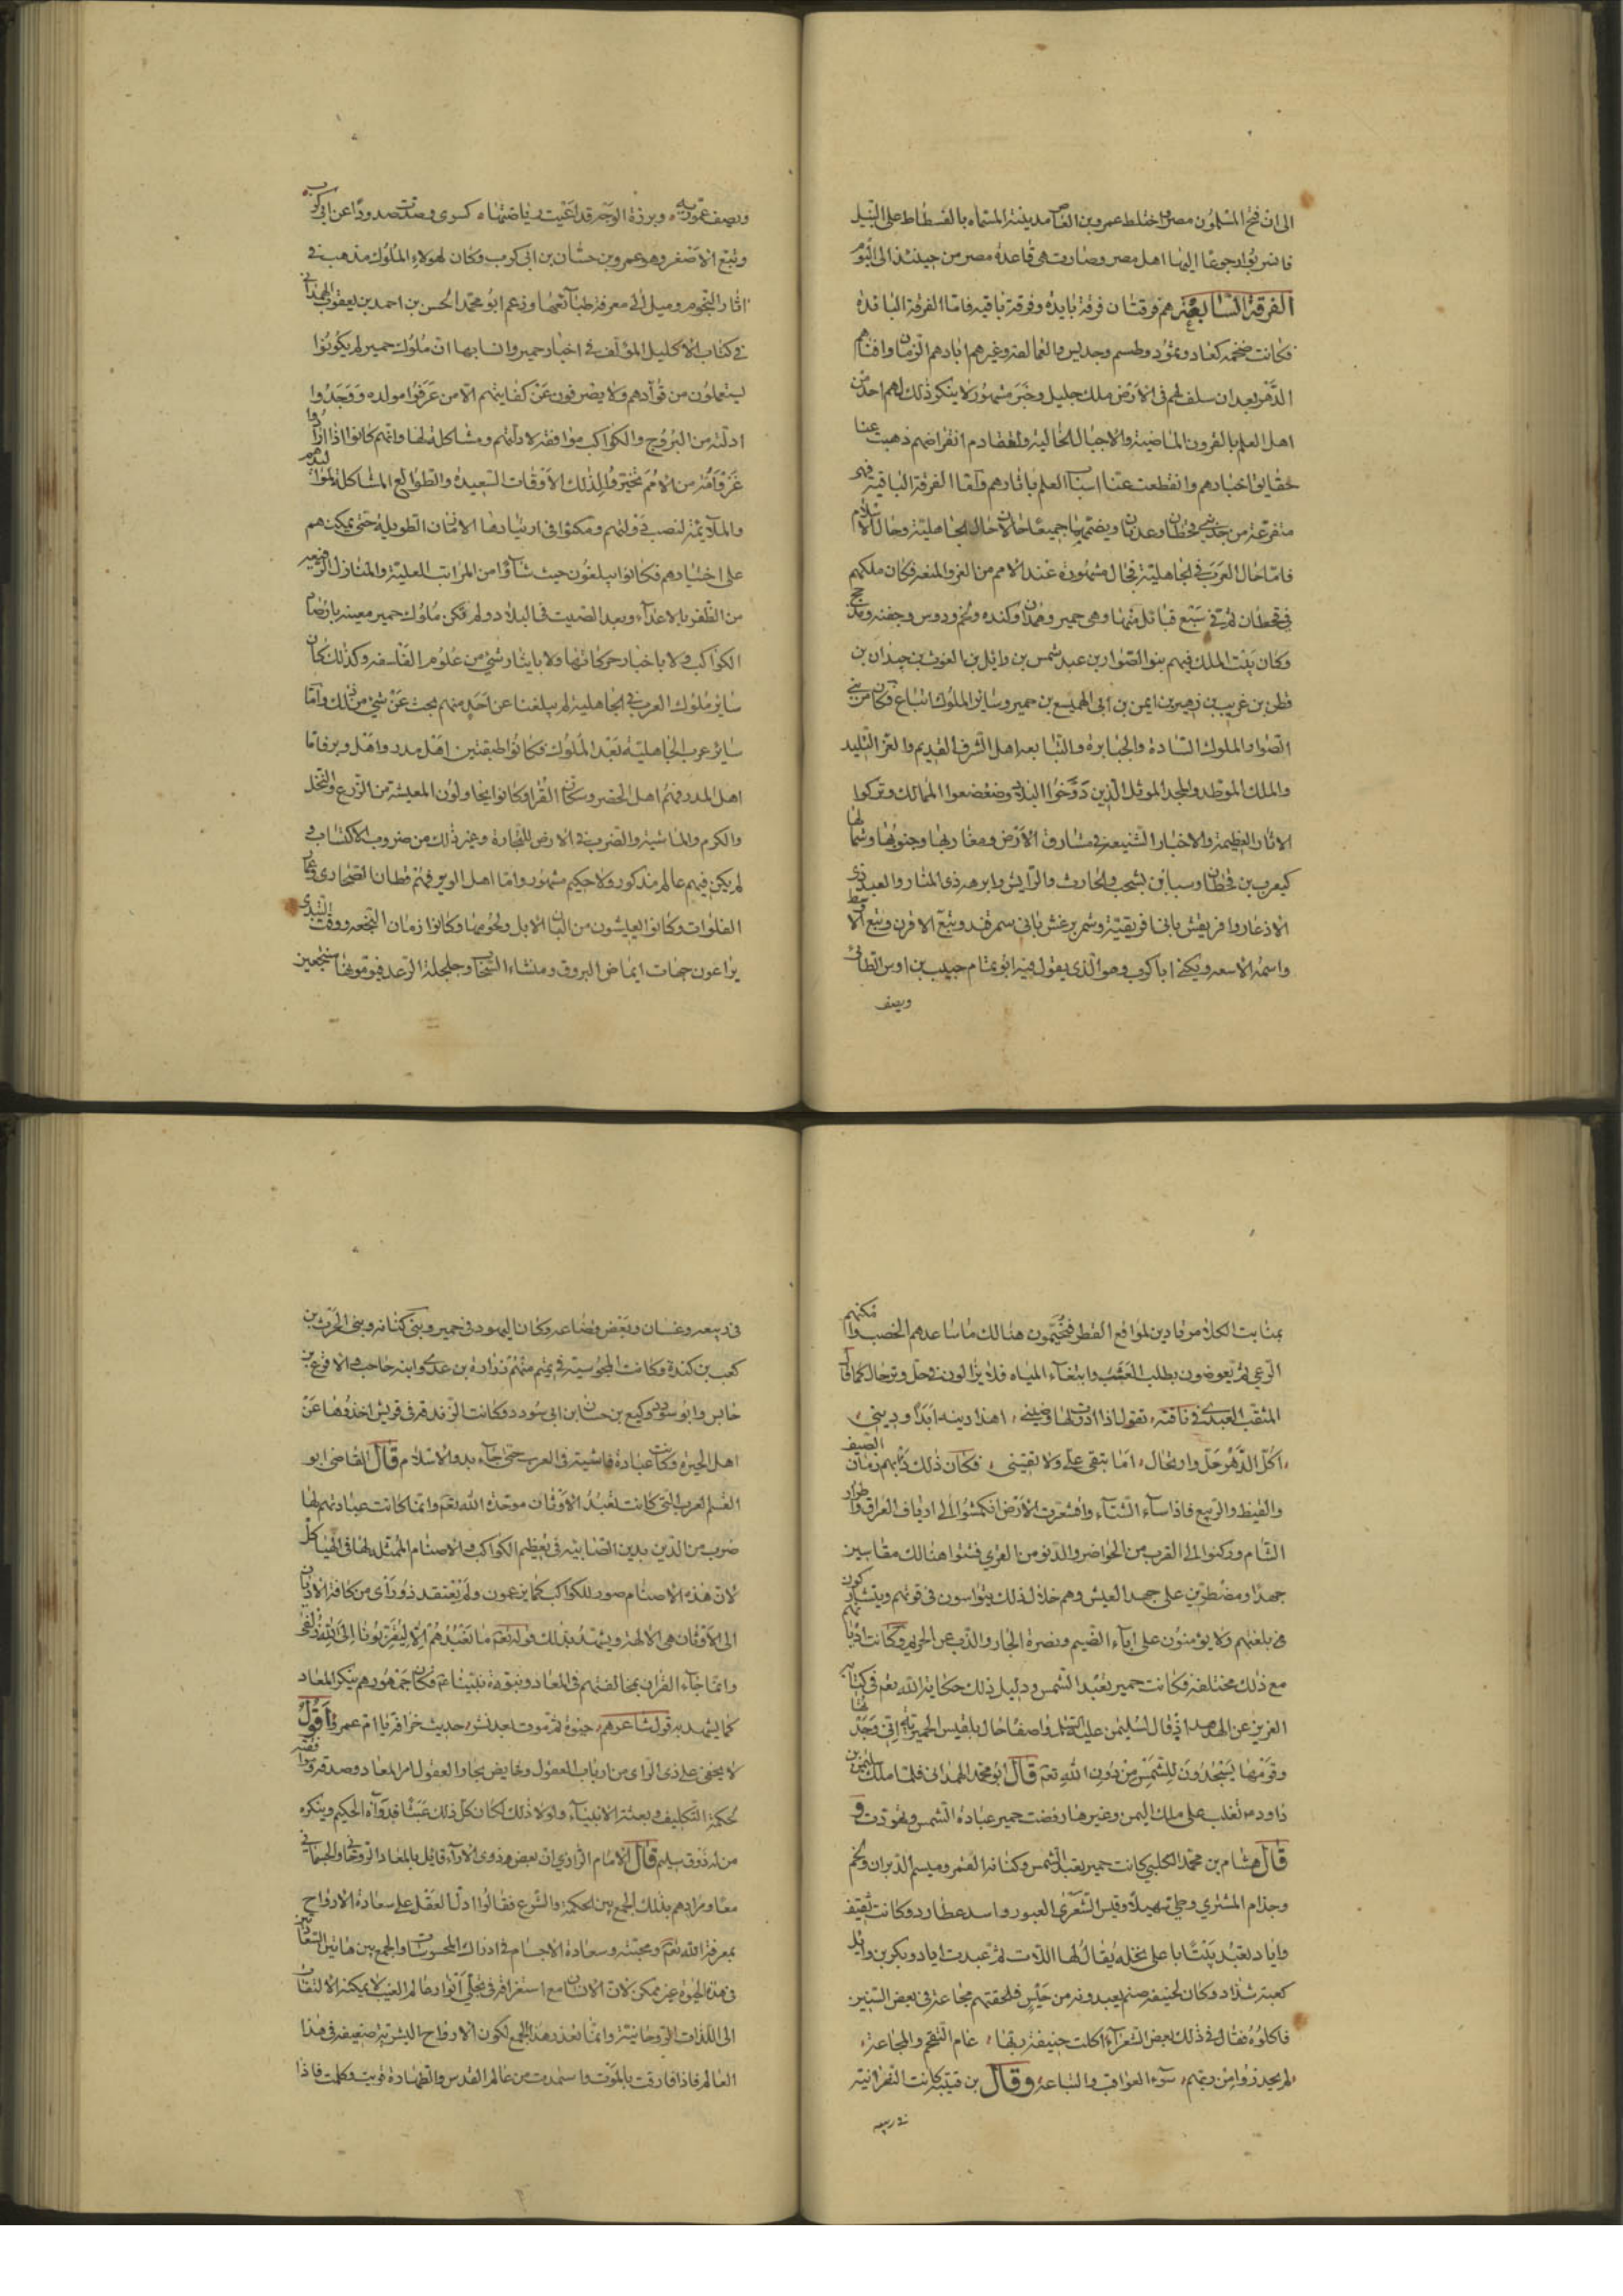 الى ان فتح المسلمون مصر واختلط عمرو بن العاص مدينة المسماه بالفسطاط على النيل
فانتربوا رجوعا اليها اهل مصر وصارت هى قاعدة مصر من حينئذ الى اليوم
الفرقة السابعة هم فرقتان فرقة بايده وفرقة باقيه فاما الفرقة البائدة
فكانت ضخمه كعاد وثمود وطسم وجديس والعمالقة وغيرهم ابادهم الزمان وافناهم
الدهر بعد ان سلف لهم فى الارض ملك جليل وخبر مشهور لا ينكر ذلك لهم احد من
اهل العلم بالقرون الماضية والاجيال الخالية ولتقادم انقراضهم ذهبت عنا
حقايق اخبارهم وانقطعت عنا اسباب العلم باثارهم واما الفرقة الباقية فهى
متفرعة من جذمين قحطان وعدنان ويضمها جميعا حالان حال الجاهلية وحال الاسلام
فاما حال العرب فى الجاهلية فحال مشهورة عند الامم من العز والمنعه فكان ملكهم
فى قحطان ثم فى سبع قبائل منها وهى حمير وهمدان وكنده ولخم ودوس وجفنه ومذحج
وكان بيت الملك فيهم بنو الصوار بن عبد شمس بن وايل بن الغوث بن جيدان بن
قطن بن غريب بن زهير بن ايمن بن ابى الهميسع بن حمير وساير الملوك اتباع فكان من بنى
الصوار الملوك السادة والجبابرة والتبابعه اهل الشرف القديم والعز التليد
والملك الموطد والمجد الموثل الذين دوخوا البلاد وضعضعوا الممالك وتركوا
الاثار العظيمة والاخبار الشنيعة فى مشارق الارض ومغاربها وجنوبها وشمالها
كيعرب بن قحطان وسبا بن يشجب والحارث والرايش وابرهه ذى المنار والعبد ذى
الاذعار وافريقش بانى افريقية وشمر يرعش بانى سمرقند وتبع الاقرن وتبع الاوسط
واسمه الاسعد ويكنى ابا كرب وهو الذى يقول فيه ابو تمام حبيب بن اوس الطائى
ويصف
ويصف عموريه وبرزة الوجه قد اعيت رياضتها كسرى وصدت صدودا عن ابى كرب
وتبع الاصغر وهو عمرو بن حسان بن ابى كرب وكان لهولاء الملوك مذهب فى
اثار النجوم وميل الى معرفة طبائعها وزعم ابو محمد الحسن بن احمد بن يعقوب الهمدانى
فى كتاب الاكليل المولف فى اخبار حمير وانسابها ان ملوك حمير لم يكونوا
يستعملون من قوادهم ولا يصرفون عن كفايتهم الا من عرفوا مولده ووجدوا
ادلته من البروج والكواكب موافقه لادلتهم ومشاكلة لها وانهم كانوا اذا ارادوا
غزو امة من الامم تخيروا لذلك الاوقات السعيدة والطوالع المشاكلة لمواليدهم
والملايمة لنصب دولتهم ومكثوا فى ارتيادها الازمان الطويلة حتى يمكنهم
على اختيارهم فكانوا يبلغون حيث شاؤا من المراتب العلية والمنازل الرفيعه
من الظفر بالاعداء وبعد الصيت فى البلاد ولم تكن ملوك حمير معنيه بارصاد
الكواكب ولا باخبار حركاتها ولا بايثار شئ من علوم الفلاسفه وكذلك كان
ساير ملوك العرب فى الجاهلية لم يبلغنا عن احد منهم بحث عن شئ من ذلك واما
ساير عرب الجاهلية بعد الملوك فكانوا طبقتين اهل مدر واهل وبر فاما
اهل المدر فهم اهل الحضر وسكان القرا وكانوا يحاولون المعيشة من الزرع والنخل
والكرم والماشية والضرب فى الارض للتجارة وغير ذلك من ضروب الاكتساب و
لم يكن فيهم عالم مذكور ولا حكيم مشهور واما اهل الوبر فهم قطان الصحارى وعمار
الفلوات وكانوا يعيشون من البان الابل ولحومها وكانوا زمان النجعه ووقت التبدى
يراعون جهات ايماض البروق ومنشاء السحاب وجلجلة الرعد فيومونها منتجعين
بمنابت الكلاء مرتادين لمواقع القطر فيخيمون هنالك ما ساعدهم الخصب وامكنهم
الرعى ثم يعوضون بطلب العشب وابتغاء المياه فلا يزالون فى حل وترحال كما قال
المثقب العبدى فى ناقته تقول اذا ادرت لها وضينى اهذا دينه ابدا ودينى
اكل الدهر حل وارتحال اما تبقى على ولا تقينى فكان ذلك دابهم زمان الصيف
والقيظ والربيع فاذا ساء الشتاء واقشعرت الارض انكمشوا الى ارياف العراق واطراد
الشام وركنوا الى القرب من الحواضر والدنو من القرى فشتوا هنالك مقاسين
جهدا ومصطبرين على جهد العيش وهم خلال ذلك يتواسون فى قوتهم ويتشاركون
فى بلغتهم ولا يومنون على اباء الضيم ونصرة الجار والذب عن الحريم وكانت اديانهم
مع ذلك مختلفة فكانت حمير تعبد الشمس ودليل ذلك حكاية الله تعم فى كتابه
العزيز عن الهدهد اذ قال لسليمن عليه السلام واصفا حال بلقيس الحميريه انى وجدتها
وقومها يسجدون للشمس من دون الله تعم قال ابو محمد الهمدانى فلما ملك سليمن بن
داود م تغلب على ملك اليمن وغيرها رفضت حمير عبادة الشمس وتهودت و
قال هشام بن محمد الكلبى كانت حمير تعبد الشمس وكنانه القمر وميسم الدبران ولخم
وجذام المشترى وطى سهيلا وقيس الشعرى العبور واسد عطارد وكانت ثقيف
واياد تعبد بيتا باعلى نخله يقال لها اللات ثم عبدت اياد وبكر بن وائل
كعبة شداد وكان لحنيفه صنم يعبدونه من حيس فلحقتهم مجاعة فى بعض السنين
فاكلوه فقال فى ذلك بعض الشعراء اكلت حنيفة ربها عام التقحم والمجاعة
لم يحذروا من ربهم سوء العواقب والتباعه وقال بن قتيبة كانت النصرانية
فى ربيعه
فى ربيعه وغسان وبعض قضاعه وكان اليهود فى حمير وبنى كنانه وبنى الحرث بن
كعب بن كندة وكانت المجوسية فى تميم منهم زراره بن عدى وابنه حاجب والاقرع بن
حابس وابو سود وكيع بن حسان بن ابى سود وكانت الزندقة فى قريش اخذوها عن
اهل الحيرة وكانت عبادة فاشية فى العرب حتى جاء بدو الاسلام قال القاضى ابو
القسم العرب التى كانت تعبد الاوثان موحدة الله تعم وانما كانت عبادتهم لها
ضرب من التدين بدين الصابية فى تعظيم الكواكب والاصنام الممثله لها فى الهياكل
لان هذه الاصنام صور للكواكب كما يزعمون ولم يعتقد ذو راى من كافة الاديان
الى الاوثان هى الالهة ويشهد بذلك قوله تعم ما نعبدهم الا ليقربونا الى الله زلفى
وانما جاء القران بمخالفتهم فى المعاد ونبوة نبينا عم فكان جمهورهم ينكر المعاد
كما يشهد به قول شاعرهم حيوة ثم موت بعد نشر حديث خرافة يا ام عمرو اقول
لا يخفى على ذى الراى من ارباب العقول وغايض بحار العقول امر المعاد وصدقه ووا
لحكمة التكليف وبعثة الانبياء ولولا ذلك لكان كل ذلك عبثا قد وآه الحكيم وينكره
من له ذوق سليم قال الامام الرازى ان بعض ذوى الاراء قايل بالمعاد الروحانى والجسمانى
معا ومرادهم بذلك الجمع بين الحكمة والشرع فقالوا دل العقل على سعادة الارواح
بمعرفة الله تعم ومحبته وسعادة الاجسام فى ادراك المحسوسات والجمع بين هاتين السعادتين
فى هذه الحيوة غير ممكن لان الانسان مع استغراقه فى تجلى انوار عالم الغيب لا يمكنه الالتفات
الى اللذات الروحانية وانما تعذر هذا الجمع لكون الارواح البشرية ضعيفه فى هذا
العالم فاذا فارقت بالموت واستمدت من عالم القدس والطهارة قويت وكملت فاذا